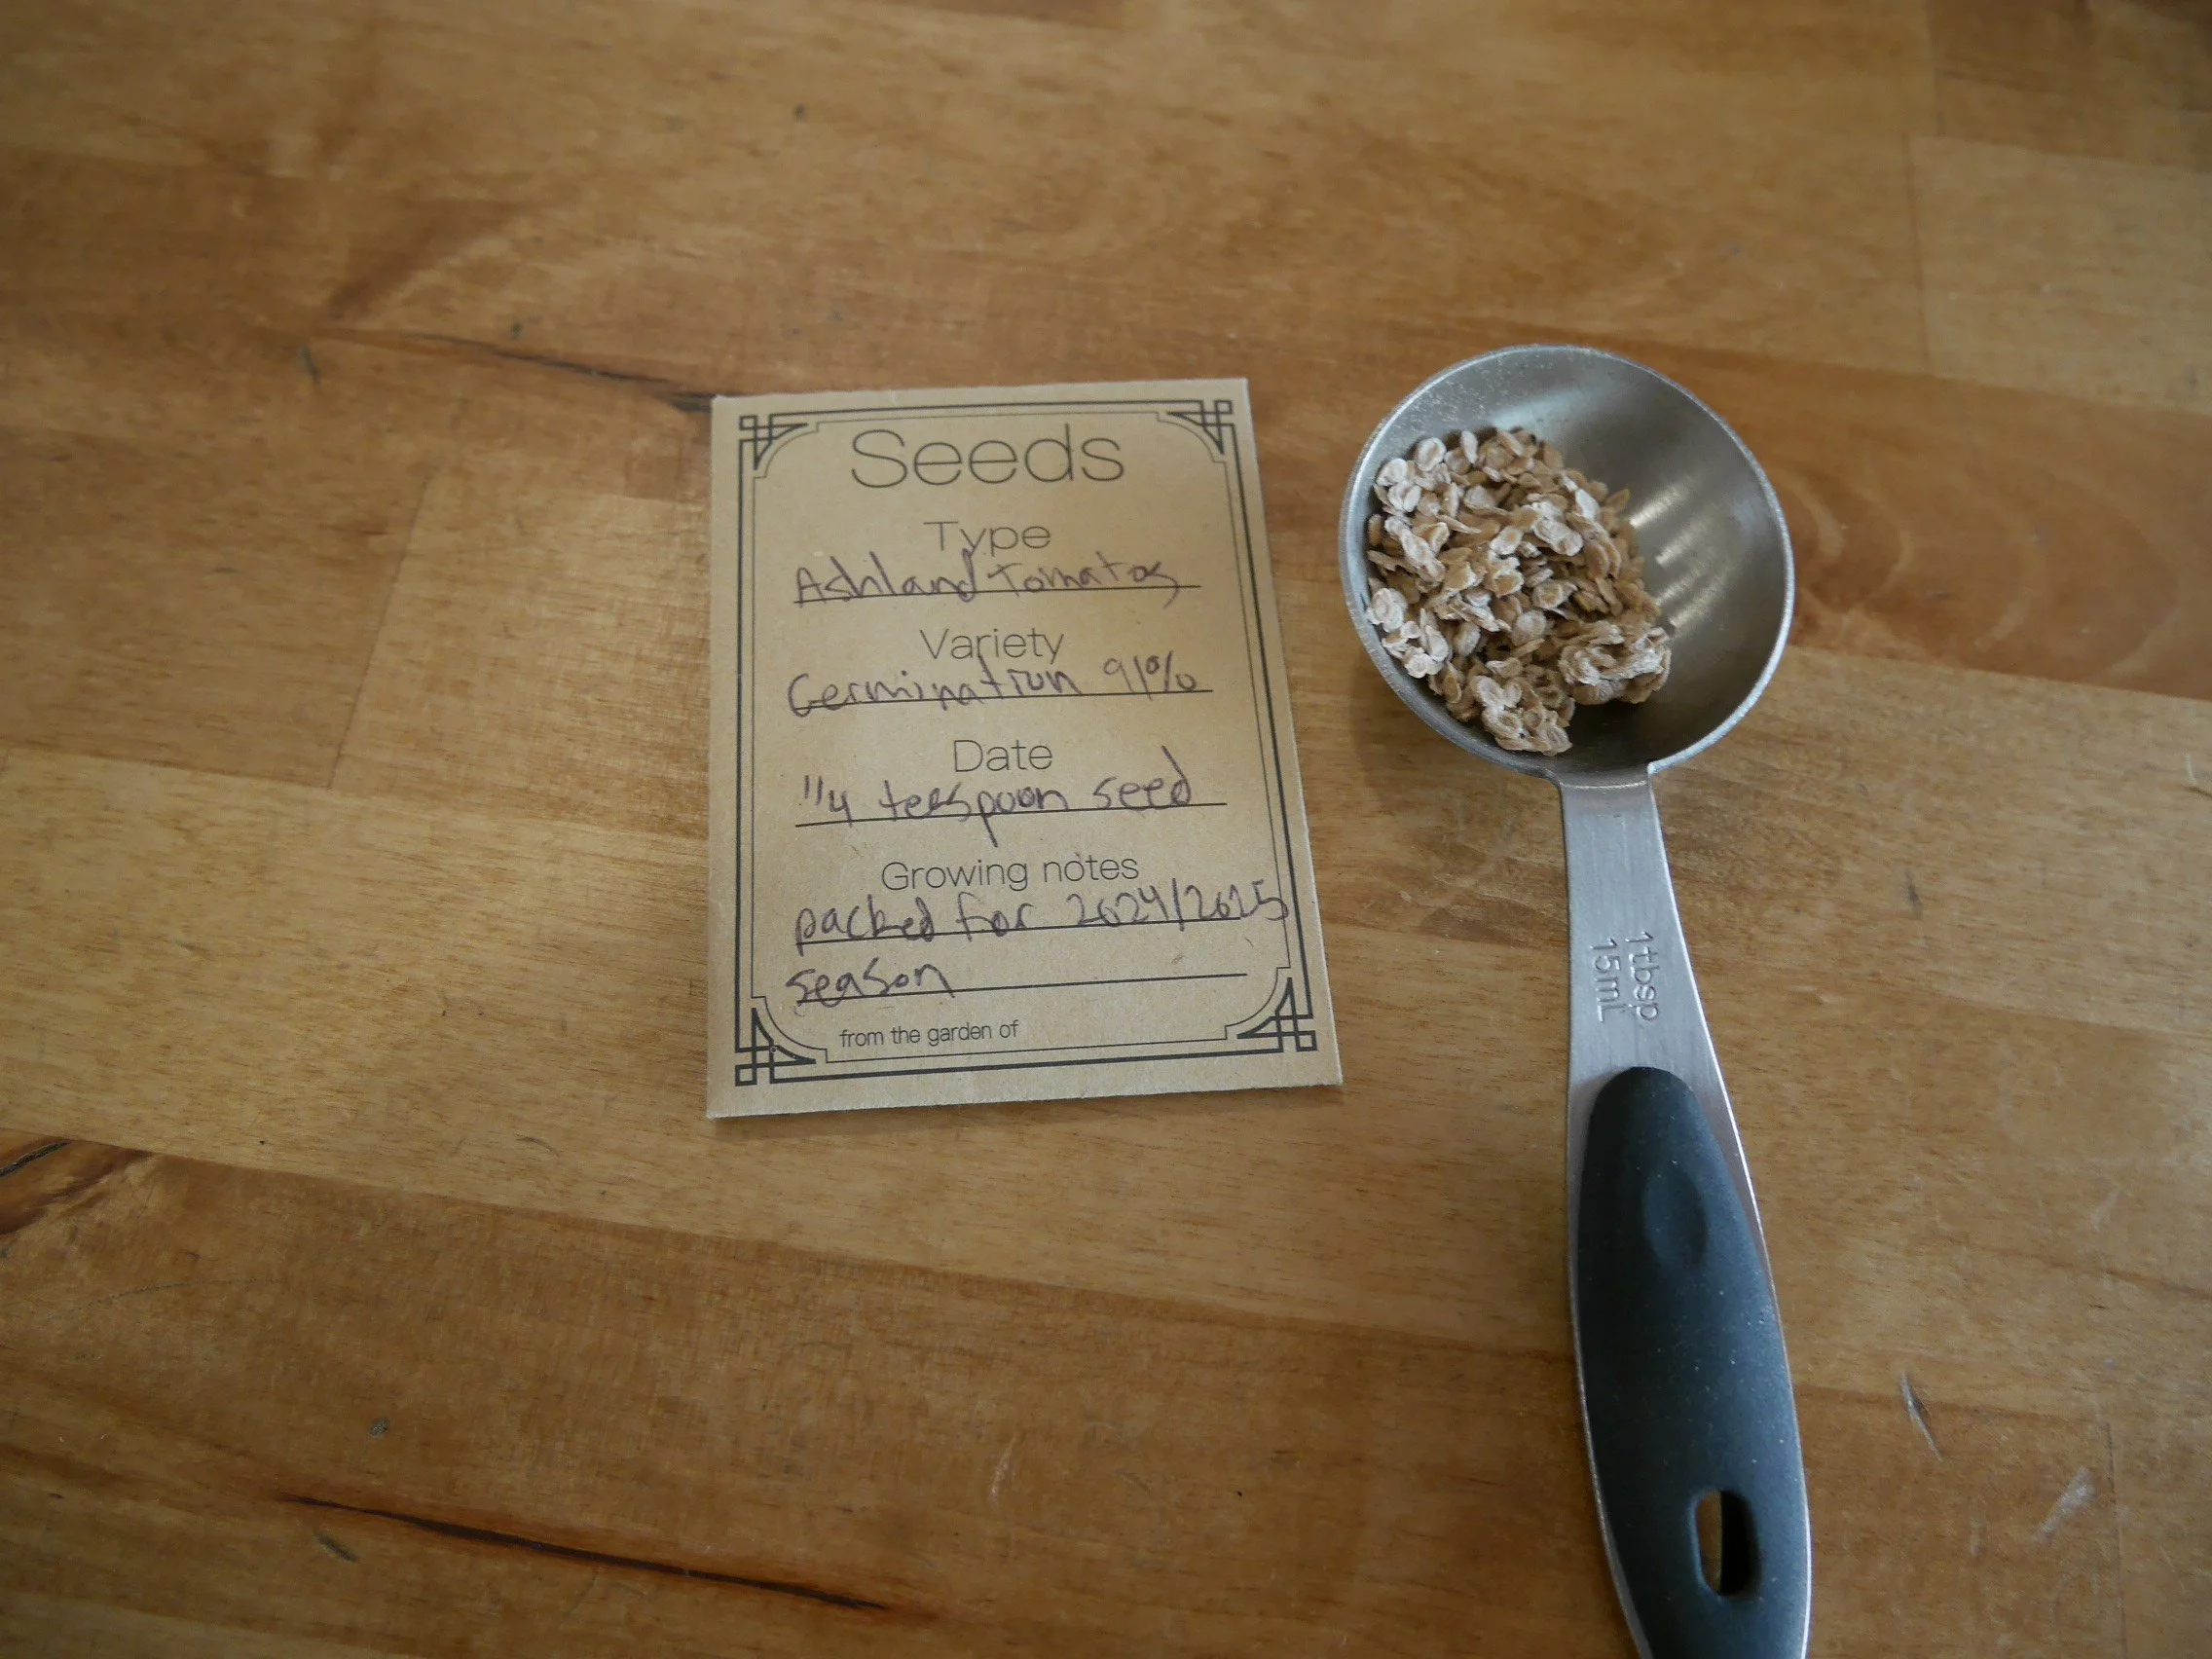 Seeds
Type
Ashland Tomatos
Variety
Germination 91%
Date
1/4 teespoon seed
Growing notes
packed for 2024/2025
season
from the garden of
1tbsp
15mL